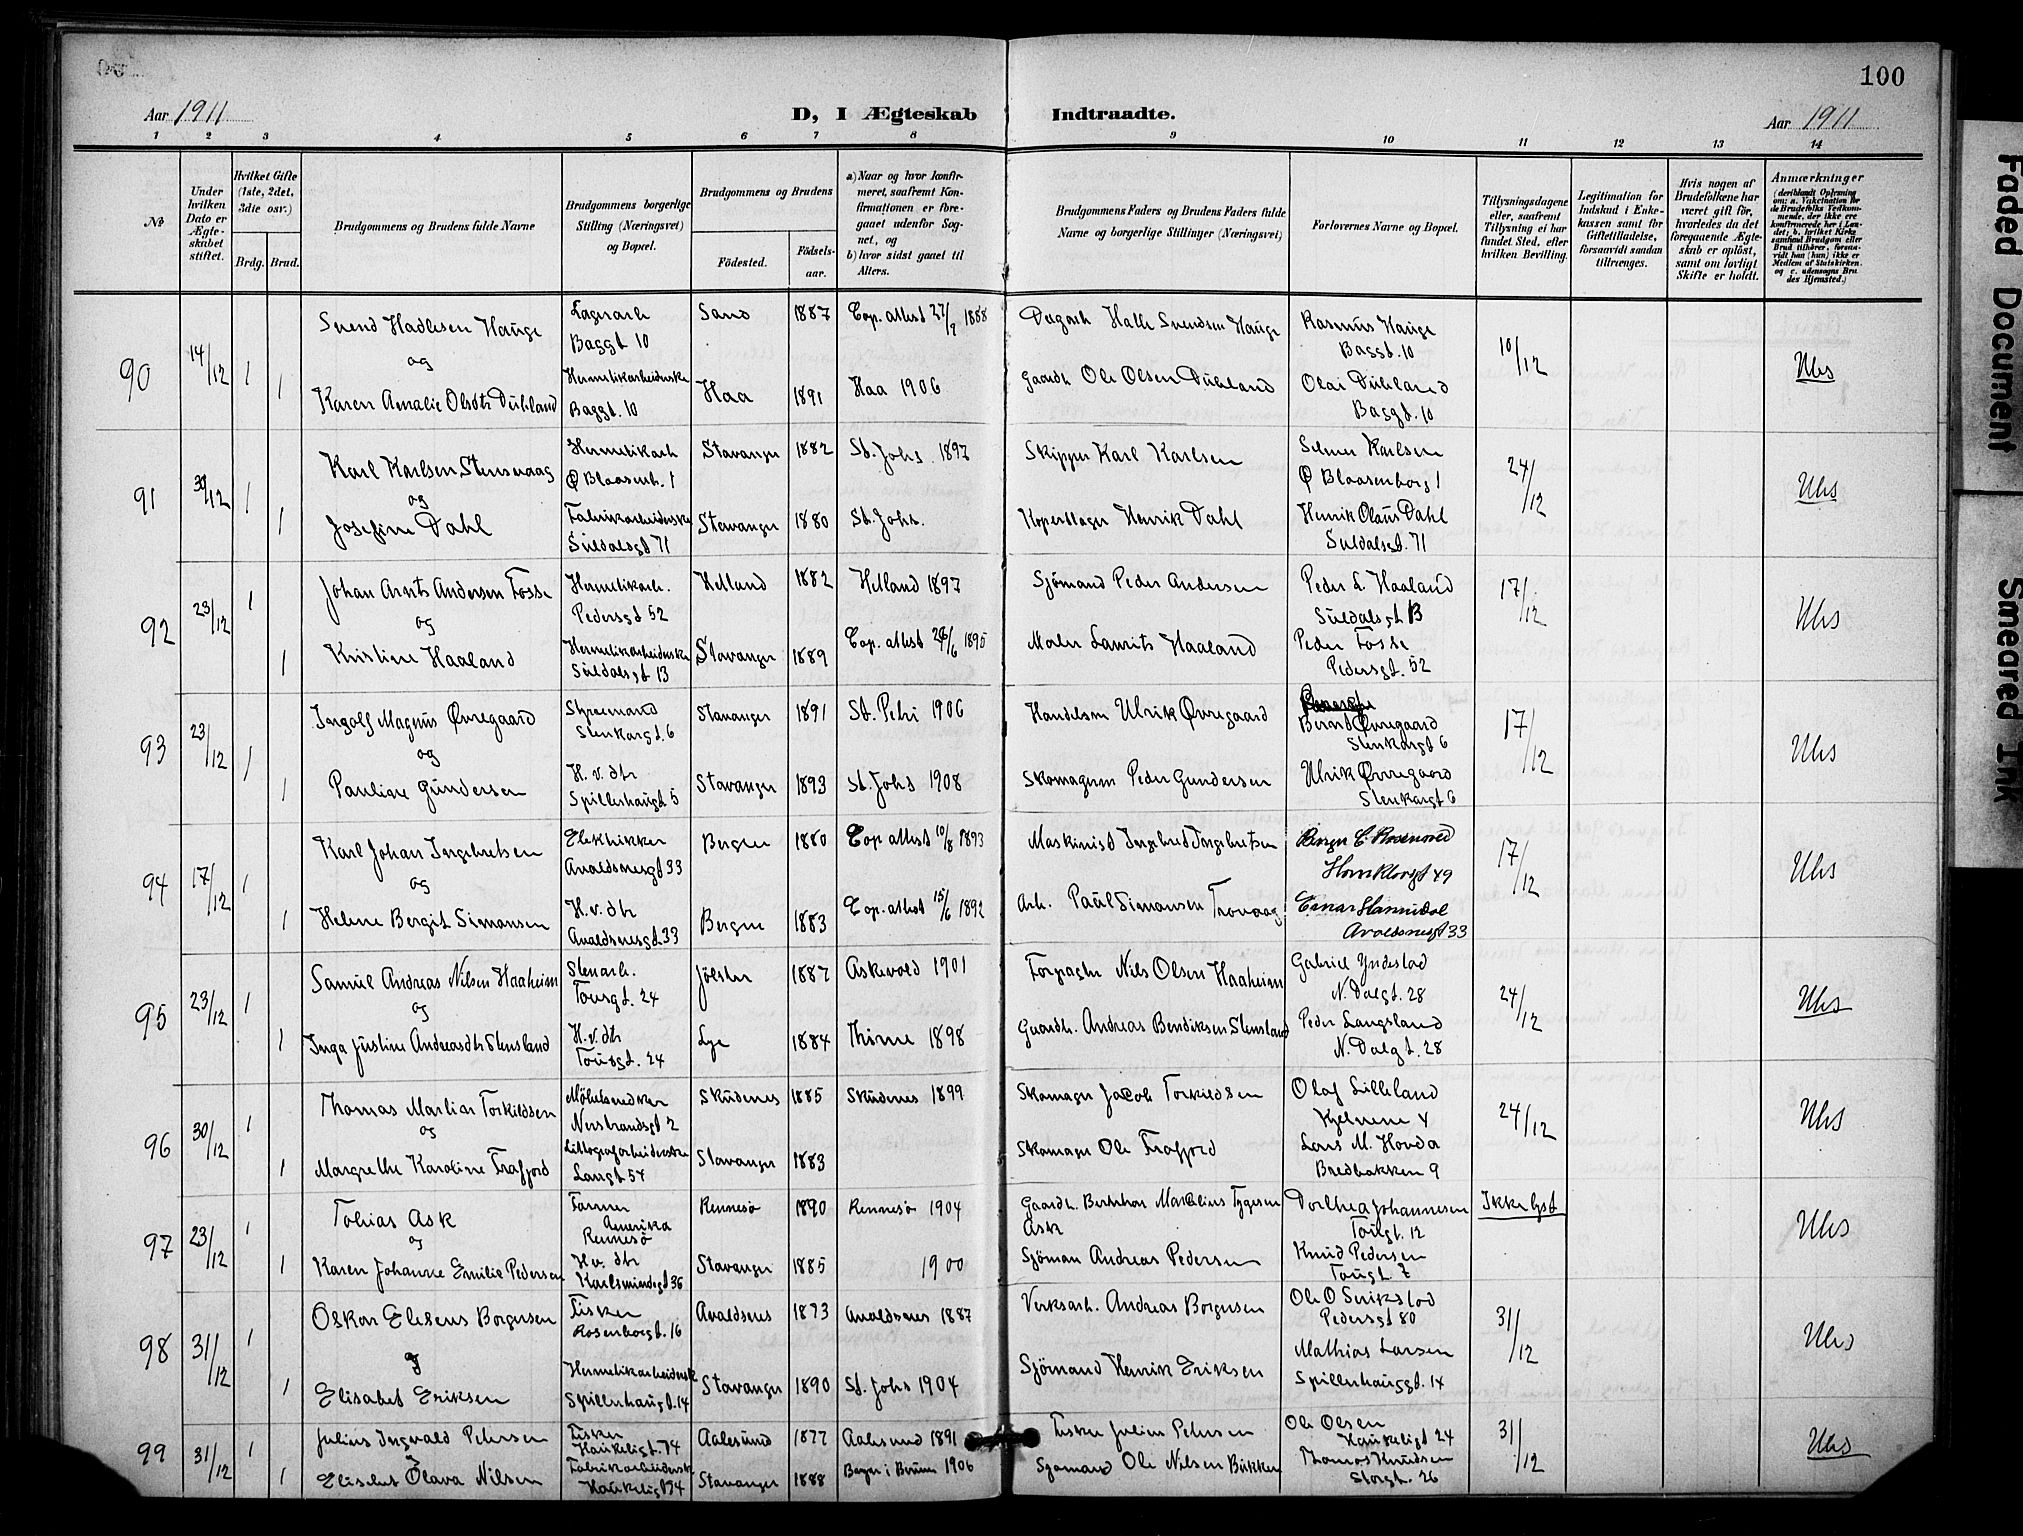 100
Aar 1911
D, I Ægteskab
Indtraadte.
Aar 1911
1 2 3 4 5 6 7 8 9 10 11 12 13 14
No
Under hvilken Dato er Ægteskabet stiftet.
Hvilket Gifte (1ste, 2det, 3die osv.)
Brdg. Brud.
Brudgommens og Brudens fulde Navne
Brudgommens borgerlige Stilling (Næringsvei) og Bopæl.
Brudgommens og Brudens
Födested.
Födselsaar.
a) Naar og hvor konfirmeret, saafremt Konfirmationen er foregaaet udenfor Sognet, og
b) hvor sidst gaaet til Alters.
Brudgommens Faders og Brudens Faders fulde Navne og borgerlige Stillinger (Næringsvei)
Forlovernes Navne og Bopæl.
Tillysningsdagene eller, saafremt Tillysning ei har fundet Sted, efter hvilken Bevilling.
Legitimation for Indskud i Enkekassen samt for Giftetilladelse, forsaavidt saadan tiltrænges.
Hvis nogen af Brudefolkene har været gift før, hvorledes da det foregaaende Ægteskab er oplöst, samt om lovligt Skifte er holdt.
Anmærkninger
90
14/12
1
Svend Hadlesen Hauge
Lagerarb
Baggt 10
Sand
1887
Cop. attest 27/9 1888
Dagarb Halle Svendsen Hauge
Rasmus Hauge
Baggt. 10
10/12
og
1
Karen Amalie Olsdtr Dubland
Hermetikarbeiderske
Baggt. 10
Haa
1891
Haa 1906
Gaardb Ole Olsen Dubland
Olai Dubland
Baggt. 10
91
30/12
1
Karl Karlsen Stensvaag
Hermetikarb
Ø Blaasenb. 1
Stavanger
1882
St. Johs. 1897
Skipper Karl Karlsen
Selmer Karlsen
Ø Blaasenborg 1
24/12
og
1
Josefine Dahl
Fabrikarbeiderske
Suldalsgt 71
Stavanger
1880
St. Johs.
Henrik Dahl
Henrik Olaus Dahl
Suldalsgt. 71
92
23/12
1
Johan Arnts Andersen Fosse
Hermetikarb.
Pedersgt 52
Hetland
1882
Hetland 1897
Sjömand Peder Andersen
Peder L. Haaland
Suldalsgt 13
17/12
og
1
Kristine Haaland
Hermetikarbeiderske
Suldalsgt 13
Stavanger
1889
Cop. attest 1895
Maler Laurits Haaland
Peder Fosse
Pedersgt. 52
93
23/12
1
Ingolf Magnus Øvregaard
Styremand
Stenkargt. 6
Stavanger
1891
St. Petri 1906
Handelsm Ulrik Øvregaard
Bernt Øvregaard
Stenkargt 6
17/12
og
1
Pauline Gundersen
H. v. dtr
Spilderhaugt 5
Stavanger
1893
St. Johs 1908
Skomagerm Peder Gundersen
Ulrik Øvregaard
Stenkargt 6
94
17/12
1
Karl Johan Ingebretsen
Elektriker
Avaldsnesgt 33
Bergen
1880
Cop attest 10/8 1893
Maskinist Ingebret Ingebretsen
49
17/12
og
1
Helene Bergit Simonsen
H. v. dtr
Avaldsnesgt 33
Bergen
1883
Cop. attest 15/6 1892
Arb. Paul Simonsen
Einar
Avaldsnesgt 33
95
23/12
1
Samuel Andreas Nilsen Haaheim
Stenarb.
Tougt. 24
Jölster
1887
Askevold 1901
Forpagter Nils Olsen Haaheim
Gabriel Yndestad
N. Dalgt. 28
24/12
og
1
Inga Justine Andreasdtr Stensland
H. v. dtr
Tougt. 24
Lye
1884
Thime 1898
Gaardb. Andreas Bendiksen Stensland
Peder Langsland
N. Dalgt. 28
96
30/12
1
Thomas Martias Torkildsen
Möbelsnedker
Nerstrandsgt 2
Skudenes
1885
Skudenes 1899
Skomager Jacob Torkildsen
Olaf Lilleland
Kjelvene 4
24/12
og
1
Margrethe Karoline Frafjord
Lithografarbeiderske
Langt 54
Stavanger
1883
Skomager Ole Frafjord
Lars M. Hovda
Bredbakken 9
97
23/12
1
Tobias Ask
Farmer
Amerika
Rennesö
Rennesö
1890
Rennesö 1904
Gaardb. Marselius Tygesen
Ask
Dorthea Johannesen
Tougt. 12
Ikke lyst
og
1
Karen Johanne Emilie Pedersen
H. v. dtr
Karlsmindegt 36
Stavanger
1885
1900
Sjöman Andreas Pedersen
Knud Pedersen
Tougt. 7
98
31/12
1
Oskar Eliseus Borgersen
Fisker
Rosenborgt. 16
Avaldsnes
1873
Avaldsnes 1887
Verksarb. Andreas Borgersen
Ole O Svikstad
Pedersgt 80
31/12
og
1
Elisabet Eriksen
Hermetikarbeidersk
Spilderhaugt. 14
Stavanger
1890
St. Johs 1904
Sjömand Henrik Eriksen
Mathias Larsen
Spilderhauggt. 14
99
31/12
1
Julius Ingvald Petersen
Fisker
Haukeligt. 74
Aalesund
1877
Aalesund 1891
Fisker Julius Petersen
Ole Olsen
Haukeligt 24
31/12
og
1
Elisabet Olava Nilsen
Fabrikarbeidersk
Haukeligt 74
Stavanger
1888
1906
Sjomand Ole Nilsen Bakken
Thomas Knudsen
Storgt. 26
Faded Document
Smeared Ink